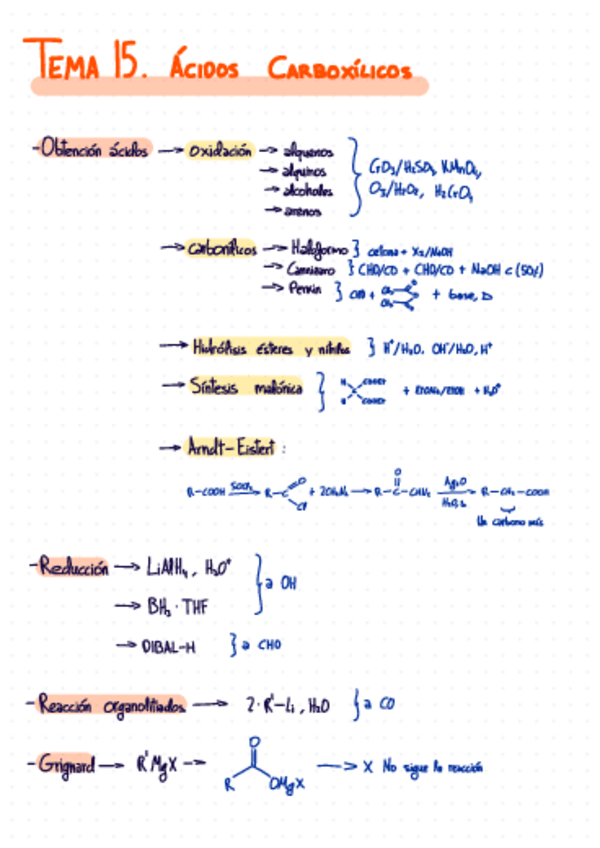 TEMA 15. ÁCIDOS CARBOXÍLICOS
- Obtención ácidos → Oxidación → alquenos
→ alquinos
→ alcoholes
→ arenos
} CrO3/H2SO4, KMnO4,
O3/H2O2, H2CrO4
→ carbonílicos → Haloformo } cetona + X2/NaOH
→ Cannizaro } CHO/CO + CHO/CO + NaOH c (50%)
→ Perkin } + base, Δ
→ Hidrólisis ésteres y nitrilos } H⁺/H2O, OH⁻/H2O, H⁺
→ Síntesis malónica } H H COOEt COOEt + EtONa/EtOH + H3O⁺
→ Arndt-Eistert :
R-COOH SOCl2 → R-C O Cl + 2CH2N2 → R-C-CHN2 O Ag2O → R-CH2-COOH
Un carbono más
- Reducción → LiAlH4, H3O⁺
→ BH3 · THF
} a OH
→ DIBAL-H } a CHO
- Reacción organolitiados → 2·R'-Li, H2O } a CO
- Grignard → R'MgX → R O OMgX → X No sigue la reacción